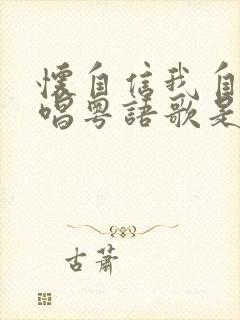 懷自信我自
唱粵語歌是
古蕭